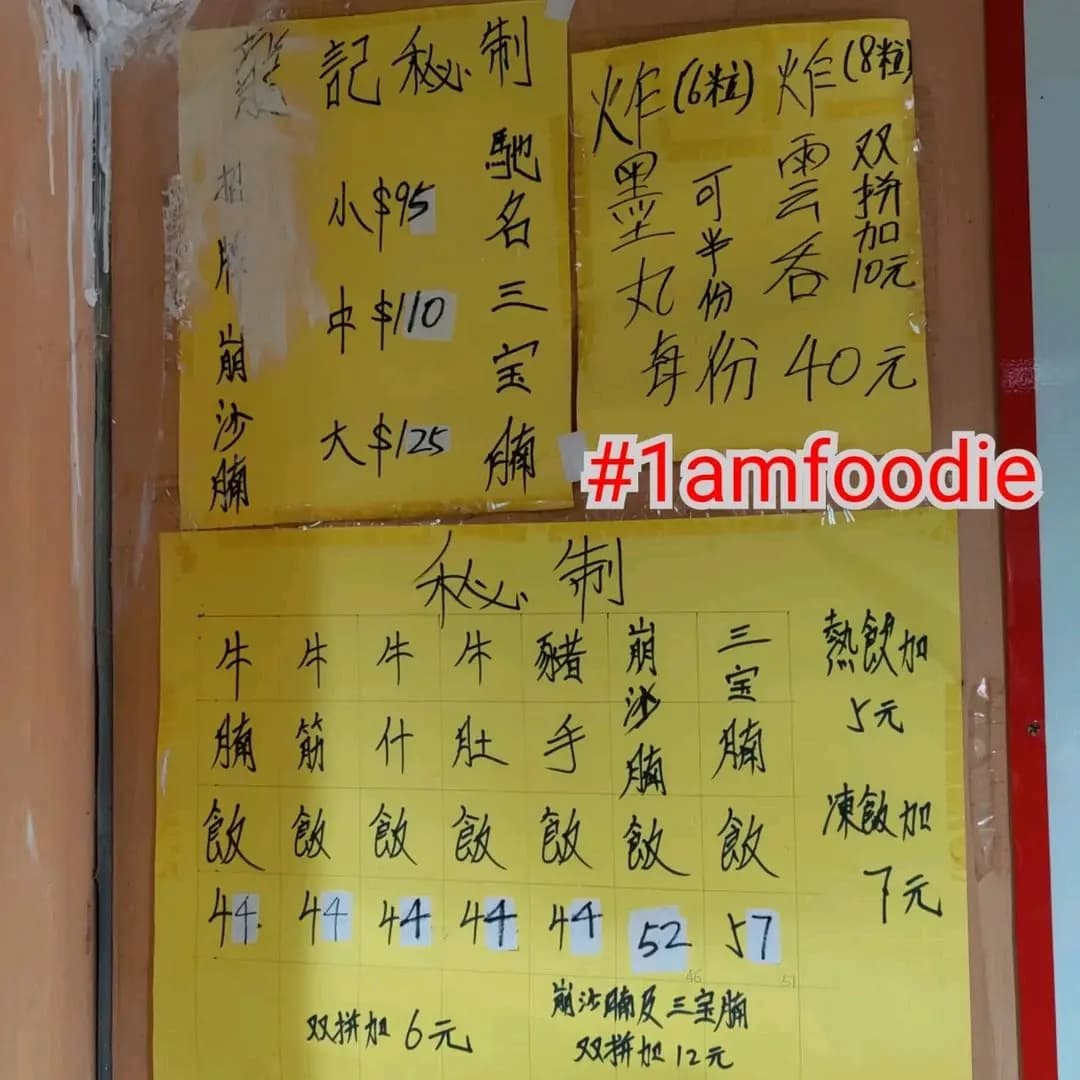 記秘制
馳名三宝腩
小$95
中$110
大$125
招牌崩沙腩
炸墨丸(6粒)
炸雲呑(8粒)
可半份
双拼加10元
每份40元
#1amfoodie
秘制
牛腩飯 44
牛筋飯 44
牛什飯 44
牛肚飯 44
豬手飯 44
崩沙腩飯 52
三宝腩飯 57
46
51
双拼加6元
崩沙腩及三宝腩
双拼加12元
熱飲加
5元
凍飲加
7元